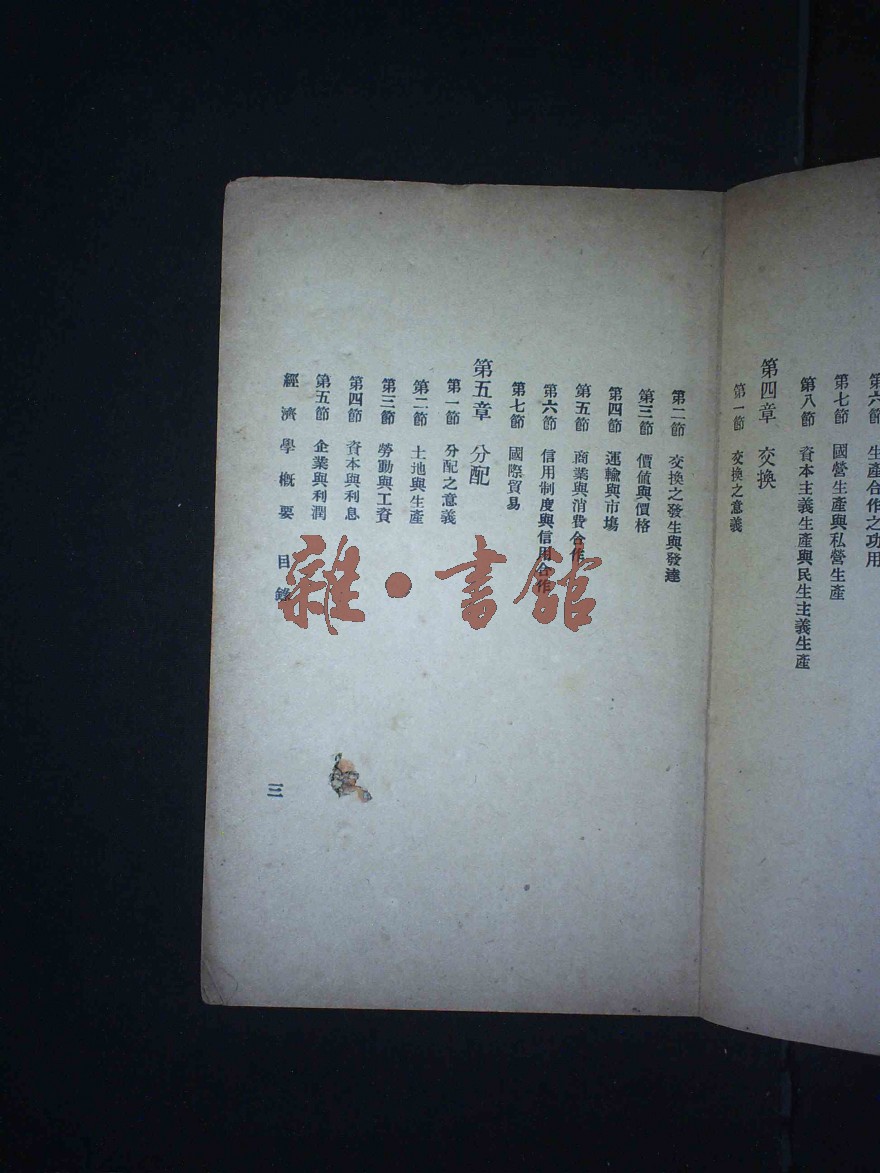 第六節 生產合作之功用
第七節 國營生產與私營生產
第八節 資本主義生產與民生主義生產
第四章 交換
第一節 交換之意義
第二節 交換之發生與發達
第三節 價值與價格
第四節 運輸與市場
第五節 商業與消費合作
第六節 信用制度與信用合作
第七節 國際貿易
第五章 分配
第一節 分配之意義
第二節 土地與生產
第三節 勞動與工資
第四節 資本與利息
第五節 企業與利潤
經濟學概要 目錄
三
雜·書館